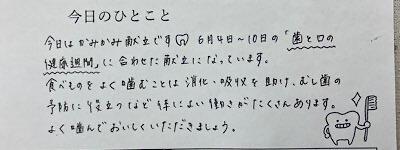 今日のひとこと
今日はかみかみ献立です 6月4日~10日の「歯と口の
健康週間」に合わせた献立になっています。
食べものをよく噛むことは消化・吸収を助け、むし歯の
予防に役立つなど体によい働きがたくさんあります。
よく噛んでおいしくいただきましょう。